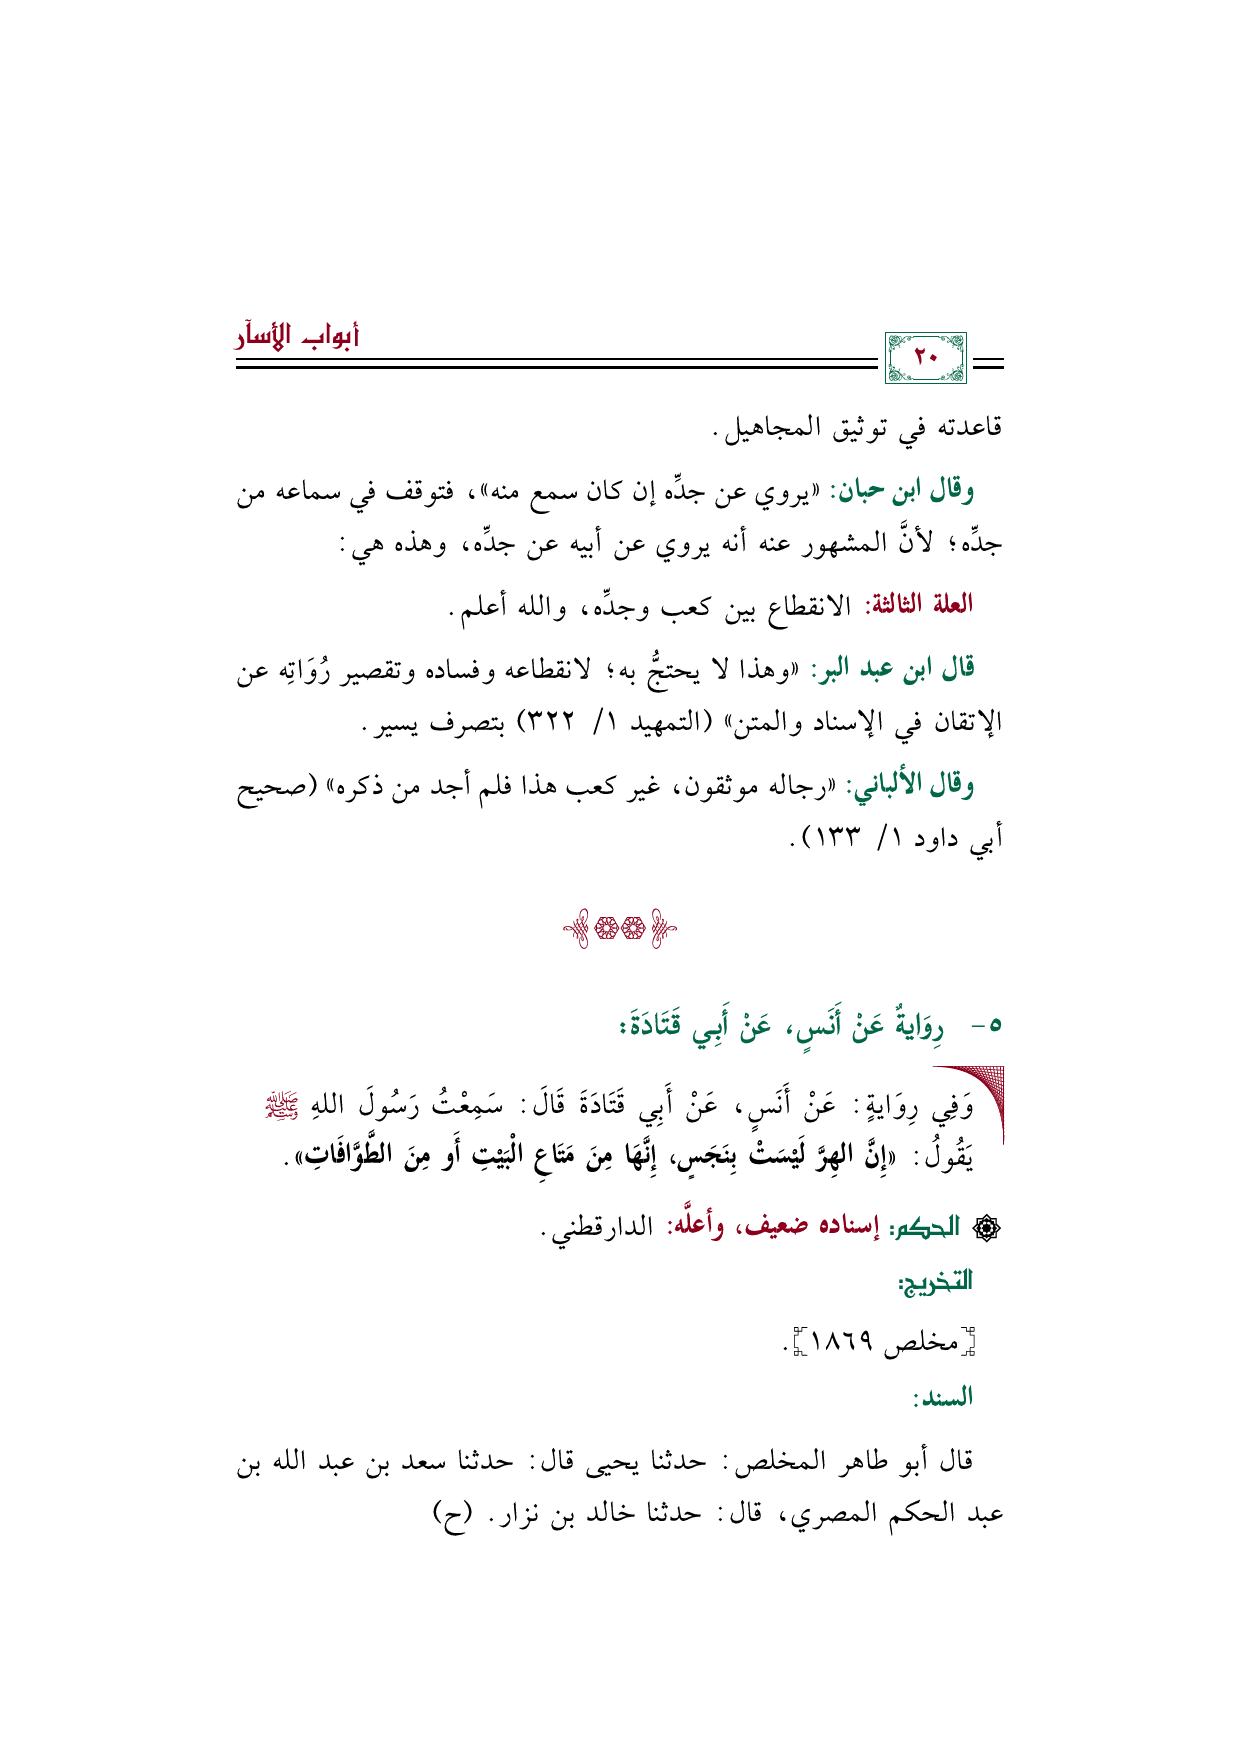 أبواب الأسآر
٢٠
قاعدته في توثيق المجاهيل.
وقال ابن حبان: «يروي عن جدِّه إن كان سمع منه»، فتوقف في سماعه من
جدِّه؛ لأنَّ المشهور عنه أنه يروي عن أبيه عن جدِّه، وهذه هي:
العلة الثالثة: الانقطاع بين كعب وجدِّه، والله أعلم.
قال ابن عبد البر: «وهذا لا يحتجُّ به؛ لانقطاعه وفساده وتقصير رُوَاتِه عن
الإتقان في الإسناد والمتن» (التمهيد ١/ ٣٢٢) بتصرف يسير.
وقال الألباني: «رجاله موثقون، غير كعب هذا فلم أجد من ذكره» (صحيح
أبي داود ١/ ١٣٣).
٥- رِوَايةٌ عَنْ أَنَسٍ، عَنْ أَبِي قَتَادَةَ:
وَفِي رِوَايةٍ: عَنْ أَنَسٍ، عَنْ أَبِي قَتَادَةَ قَالَ: سَمِعْتُ رَسُولَ اللهِ ﷺ
يَقُولُ: «إِنَّ الهِرَّ لَيْسَتْ بِنَجَسٍ، إِنَّهَا مِنَ مَتَاعِ الْبَيْتِ أَو مِنَ الطَّوَّافَاتِ».
الحكم: إسناده ضعيف، وأعلَّه: الدارقطني.
التخريج:
[مخلص ١٨٦٩].
السند:
قال أبو طاهر المخلص: حدثنا يحيى قال: حدثنا سعد بن عبد الله بن
عبد الحكم المصري، قال: حدثنا خالد بن نزار. (ح)